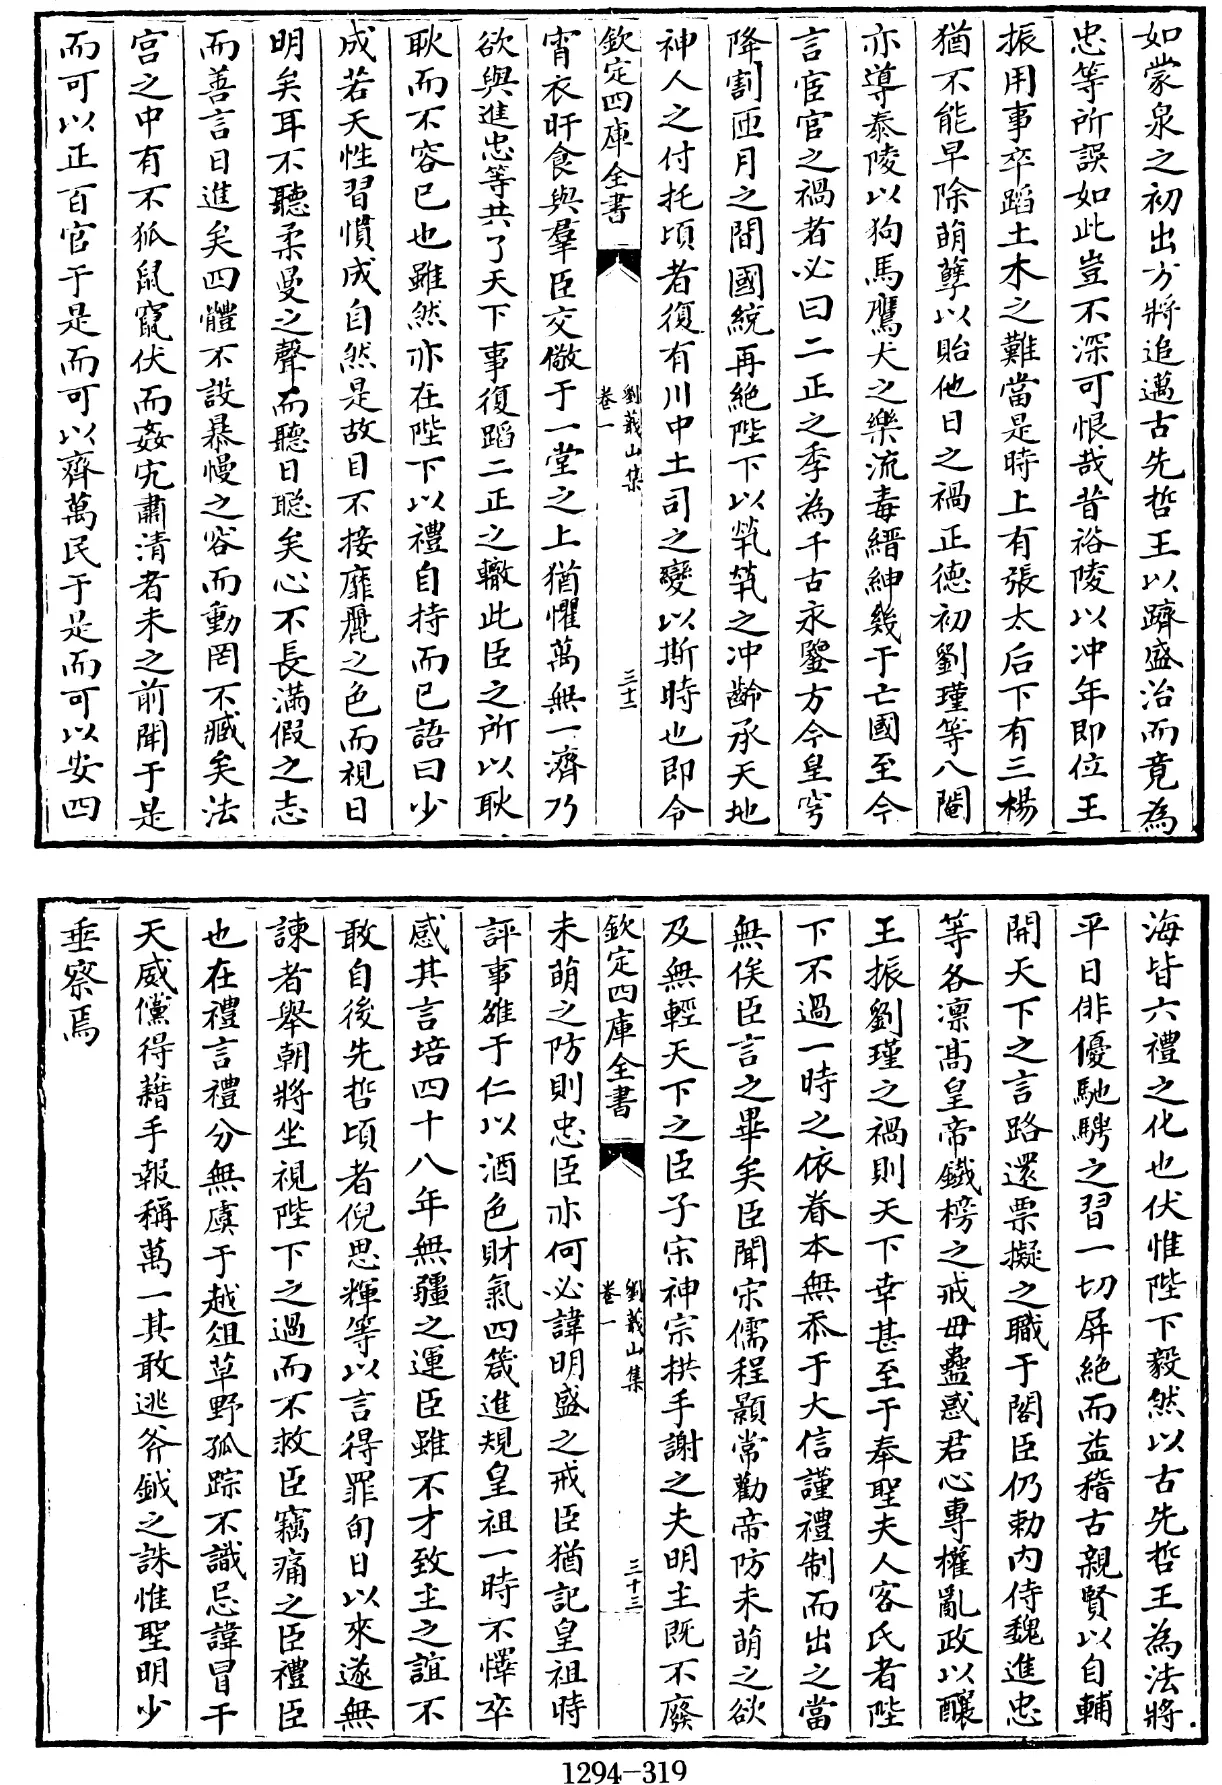 如蒙泉之初出方將追邁古先哲王以躋盛治而竟為
忠等所誤如此豈不深可恨哉昔裕陵以冲年即位王
振用事卒蹈土木之難當是時上有張太后下有三楊
猶不能早除萌孽以貽他日之禍正德初劉瑾等八閹
亦導泰陵以狗馬鷹犬之樂流毒縉紳幾于亡國至今
言宦官之禍者必曰二正之季為千古永鑒方今皇穹
降割匝月之間國統再絶陛下以煢煢之冲齡承天地
神人之付托頃者復有川中土司之變以斯時也即令
欽定四庫全書
劉蕺山集
卷一
三十二
宵衣旰食與羣臣交儆于一堂之上猶懼萬無一濟乃
欲與進忠等共了天下事復蹈二正之轍此臣之所以耿
耿而不容已也雖然亦在陛下以禮自持而已語曰少
成若天性習慣成自然是故目不接靡麗之色而視日
明矣耳不聽柔曼之聲而聽日聰矣心不長滿假之志
而善言日進矣四體不設暴慢之容而動罔不臧矣法
宮之中有不狐鼠竄伏而姦宄肅清者未之前聞于是
而可以正百官于是而可以齊萬民于是而可以安四
海皆六禮之化也伏惟陛下毅然以古先哲王為法將
平日俳優馳騁之習一切屏絶而益稽古親賢以自輔
開天下之言路還票擬之職于閣臣仍勅内侍魏進忠
等各凛髙皇帝鐵榜之戒毋蠱惑君心專權亂政以釀
王振劉瑾之禍則天下幸甚至于奉聖夫人客氏者陛
下不過一時之依眷本無忝于大信謹禮制而出之當
無俟臣言之畢矣臣聞宋儒程顥常勸帝防未萌之欲
及無輕天下之臣子宋神宗拱手謝之夫明主既不廢
欽定四庫全書
劉蕺山集
卷一
三十三
未萌之防則忠臣亦何必諱明盛之戒臣猶記皇祖時
評事雒于仁以酒色財氣四箴進規皇祖一時不懌卒
感其言培四十八年無疆之運臣雖不才致主之誼不
敢自後先哲頃者倪思輝等以言得罪旬日以來遂無
諫者舉朝將坐視陛下之過而不救臣竊痛之臣禮臣
也在禮言禮分無虞于越俎草野孤踪不識忌諱冒干
天威儻得藉手報稱萬一其敢逃斧鉞之誅惟聖明少
垂察焉
1294-319